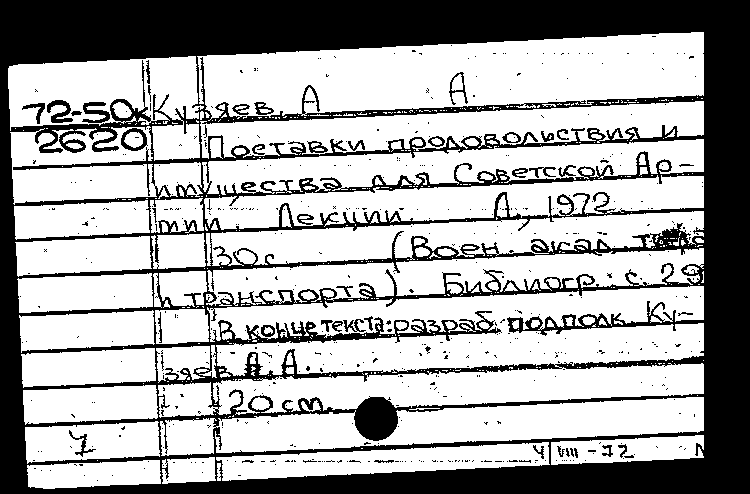 72-50к Кузяев, А А.
2620 Поставки продовольствия и
имущества для Советской Ар-
мии. Лекции. Л., 1972.
30с (Воен. акад. тыла
и транспорта). Библиогр.: с. 29
В конце текста: разраб. подполк. Ку-
зяев А. А.
20 см.
4/VIII - 72